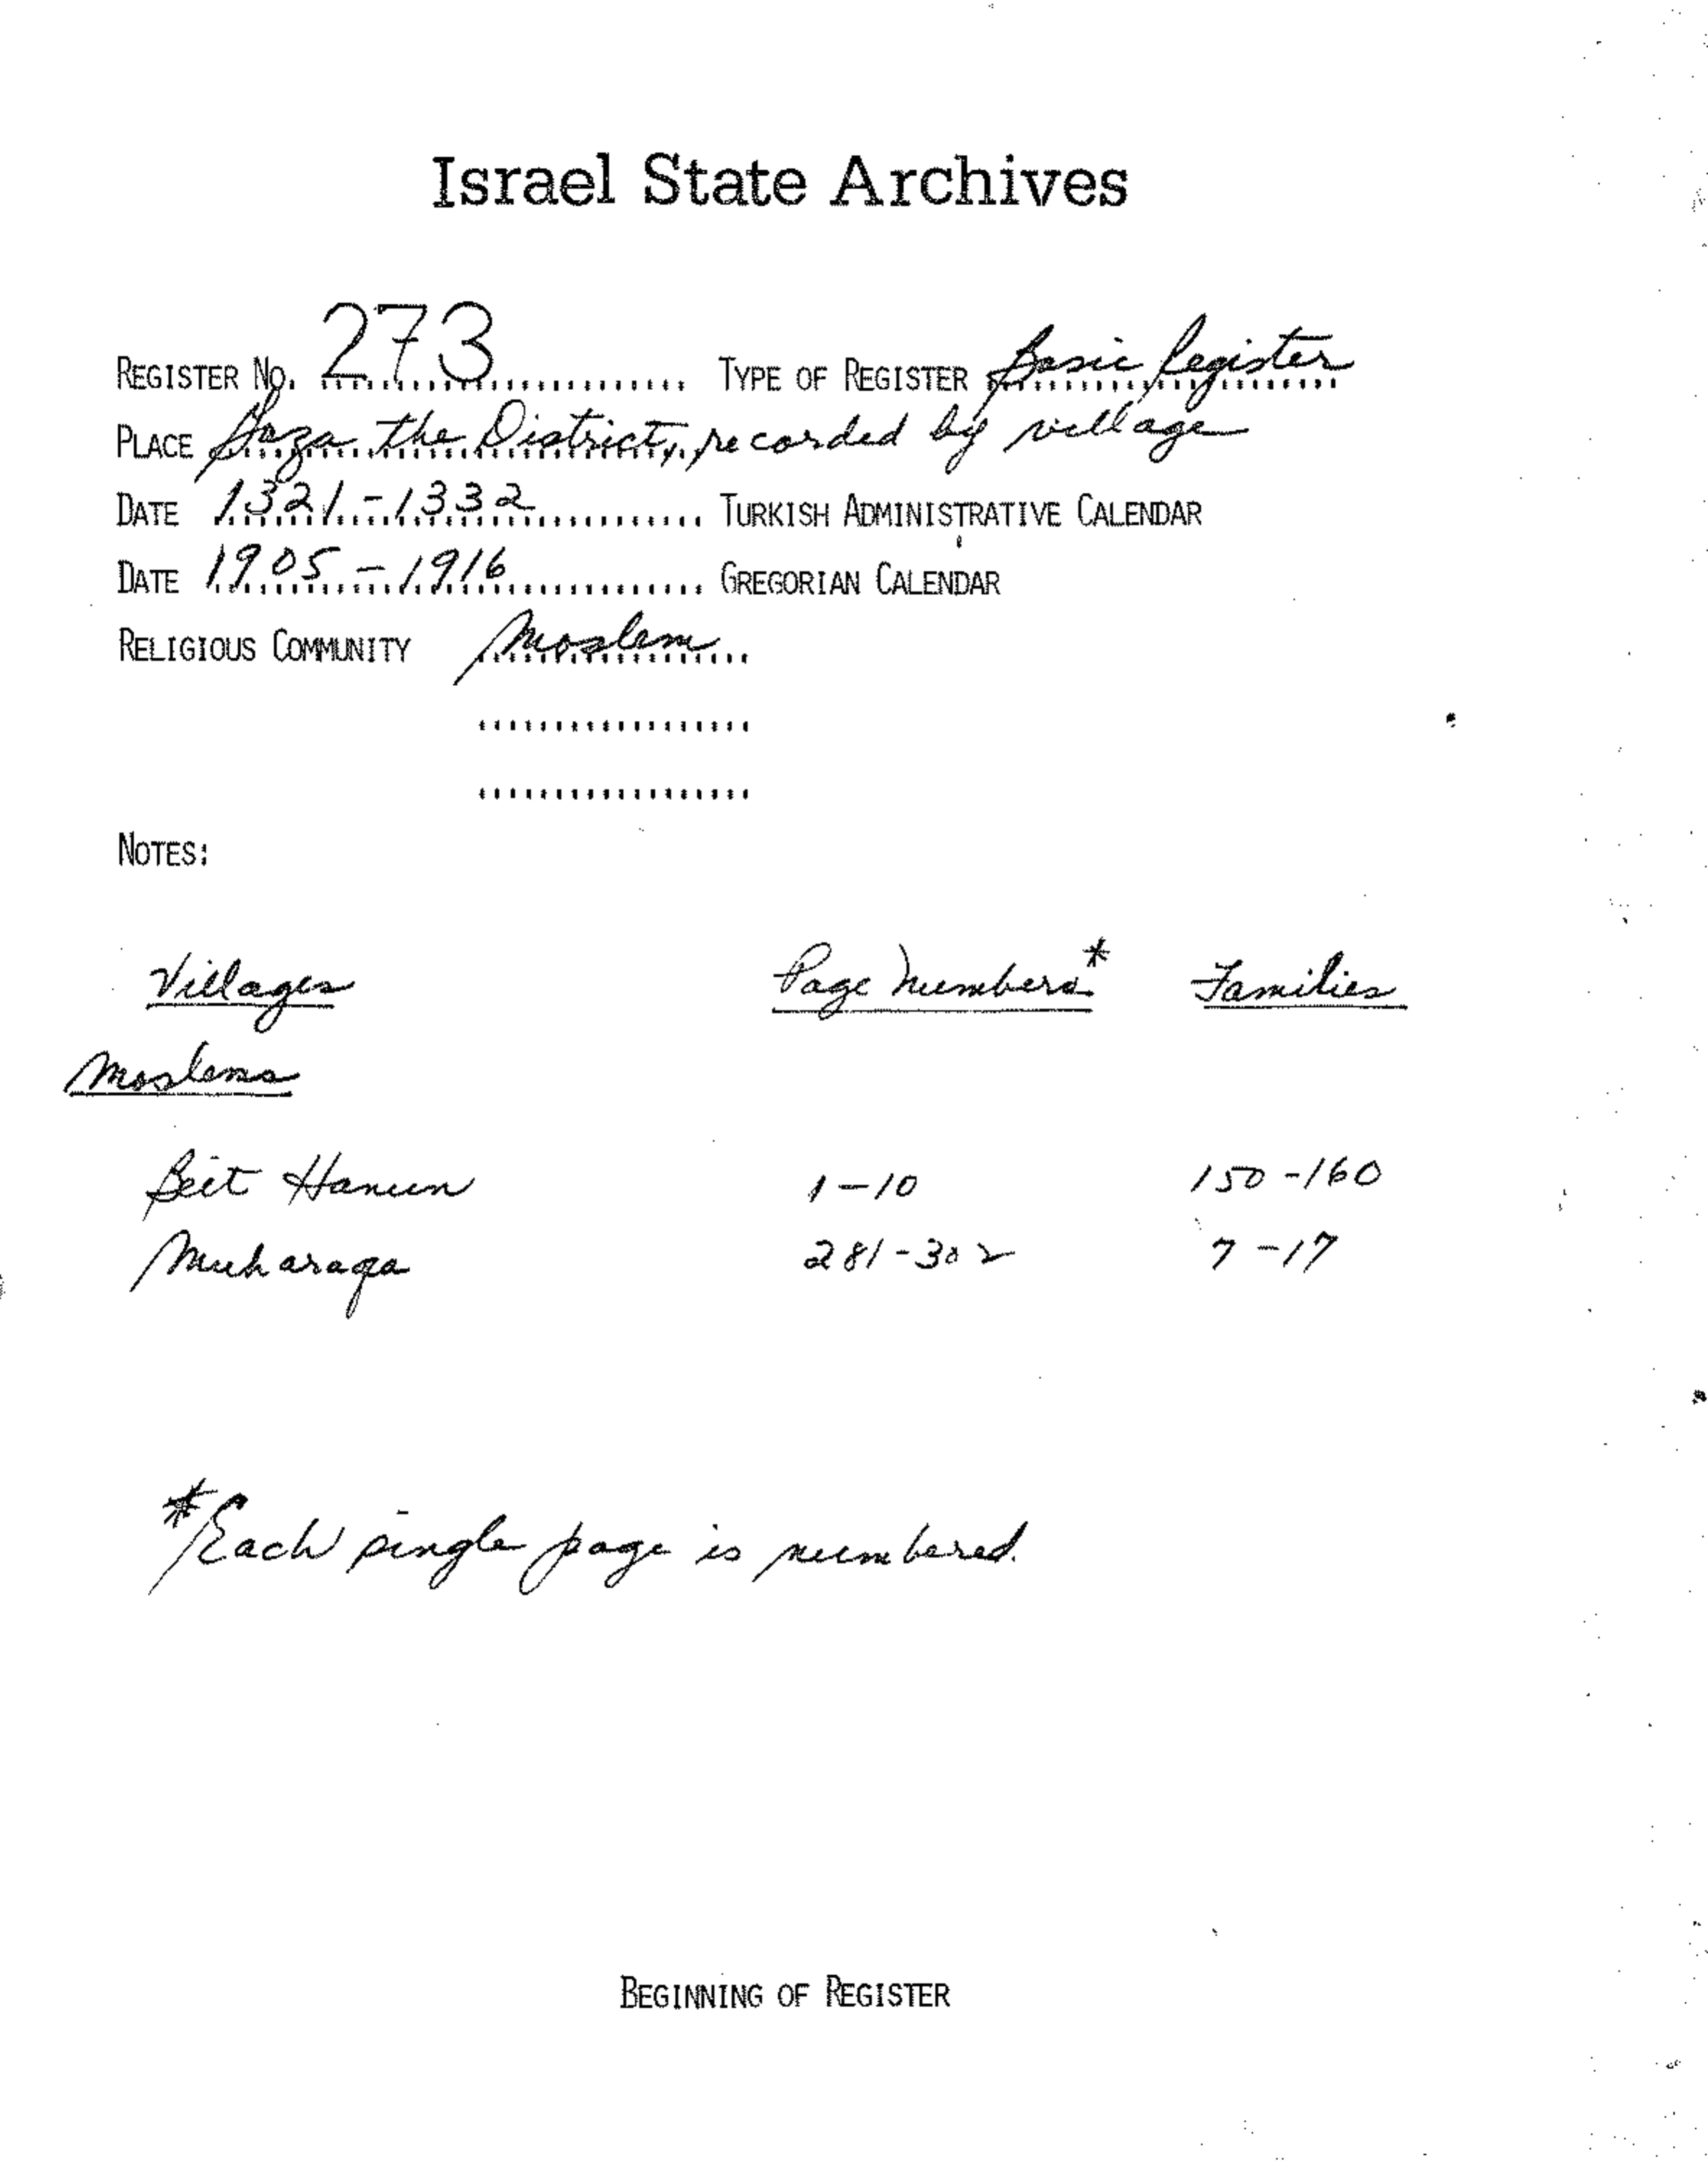 Israel State Archives
REGISTER NO. 273 TYPE OF REGISTER Basic Register
PLACE Gaza the District, recorded by village
DATE 1321-1332 TURKISH ADMINISTRATIVE CALENDAR
DATE 1905-1916 GREGORIAN CALENDAR
RELIGIOUS COMMUNITY Moslem
NOTES:
Villages Page Numbers* Families
Moslems
Beit Hanun 1-10 150-160
Muharaqa 281-302 7-17
*Each single page is numbered.
BEGINNING OF REGISTER